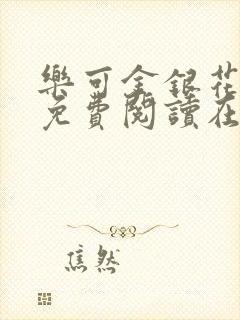 樂可金銀花
免費閱讀在
焦然